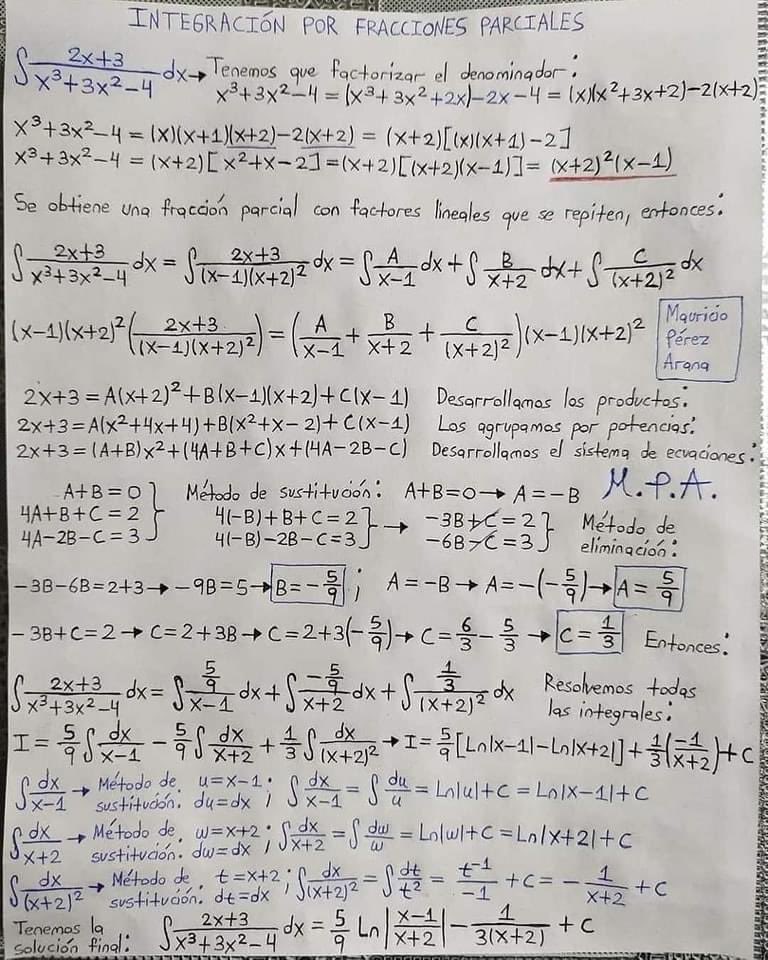 INTEGRACIÓN POR FRACCIONES PARCIALES
∫ (2x+3)/(x³+3x²-4) dx → Tenemos que factorizar el denominador:
x³+3x²-4 = (x³+3x²+2x)-2x-4 = (x)(x²+3x+2)-2(x+2)
x³+3x²-4 = (x)(x+1)(x+2)-2(x+2) = (x+2)[(x)(x+1)-2]
x³+3x²-4 = (x+2)[x²+x-2] = (x+2)[(x+2)(x-1)] = (x+2)²(x-1)
Se obtiene una fracción parcial con factores lineales que se repiten, entonces:
∫ (2x+3)/(x³+3x²-4) dx = ∫ (2x+3)/((x-1)(x+2)²) dx = ∫ A/(x-1) dx + ∫ B/(x+2) dx + ∫ C/(x+2)² dx
(x-1)(x+2)² ((2x+3)/((x-1)(x+2)²)) = (A/(x-1) + B/(x+2) + C/(x+2)²)(x-1)(x+2)²
Mauricio
Pérez
Arana
2x+3 = A(x+2)²+B(x-1)(x+2)+C(x-1) Desarrollamos los productos:
2x+3 = A(x²+4x+4)+B(x²+x-2)+C(x-1) Los agrupamos por potencias:
2x+3 = (A+B)x²+(4A+B+C)x+(4A-2B-C) Desarrollamos el sistema de ecuaciones:
A+B=0 } Método de sustitución: A+B=0 → A=-B M.P.A.
4A+B+C=2 } 4(-B)+B+C=2 } → -3B+C=2 } Método de
4A-2B-C=3 } 4(-B)-2B-C=3 } -6B-C=3 } eliminación:
-3B-6B=2+3 → -9B=5 → B=-5/9 ; A=-B → A=-(-5/9) → A=5/9
-3B+C=2 → C=2+3B → C=2+3(-5/9) → C=6/3-5/3 → C=1/3 Entonces:
∫ (2x+3)/(x³+3x²-4) dx = ∫ (5/9)/(x-1) dx + ∫ (-5/9)/(x+2) dx + ∫ (1/3)/(x+2)² dx Resolvemos todas las integrales:
I = 5/9 ∫ dx/(x-1) - 5/9 ∫ dx/(x+2) + 1/3 ∫ dx/(x+2)² → I = 5/9 [Ln|x-1|-Ln|x+2|] + 1/3 (-1/(x+2)) + C
∫ dx/(x-1) → Método de sustitución: u=x-1 ; du=dx ; ∫ dx/(x-1) = ∫ du/u = Ln|u|+C = Ln|x-1|+C
∫ dx/(x+2) → Método de sustitución: w=x+2 ; dw=dx ; ∫ dx/(x+2) = ∫ dw/w = Ln|w|+C = Ln|x+2|+C
∫ dx/(x+2)² → Método de sustitución: t=x+2 ; dt=dx ; ∫ dx/(x+2)² = ∫ dt/t² = t⁻¹/-1 +C = -1/(x+2) + C
Tenemos la solución final: ∫ (2x+3)/(x³+3x²-4) dx = 5/9 Ln|(x-1)/(x+2)| - 1/(3(x+2)) + C